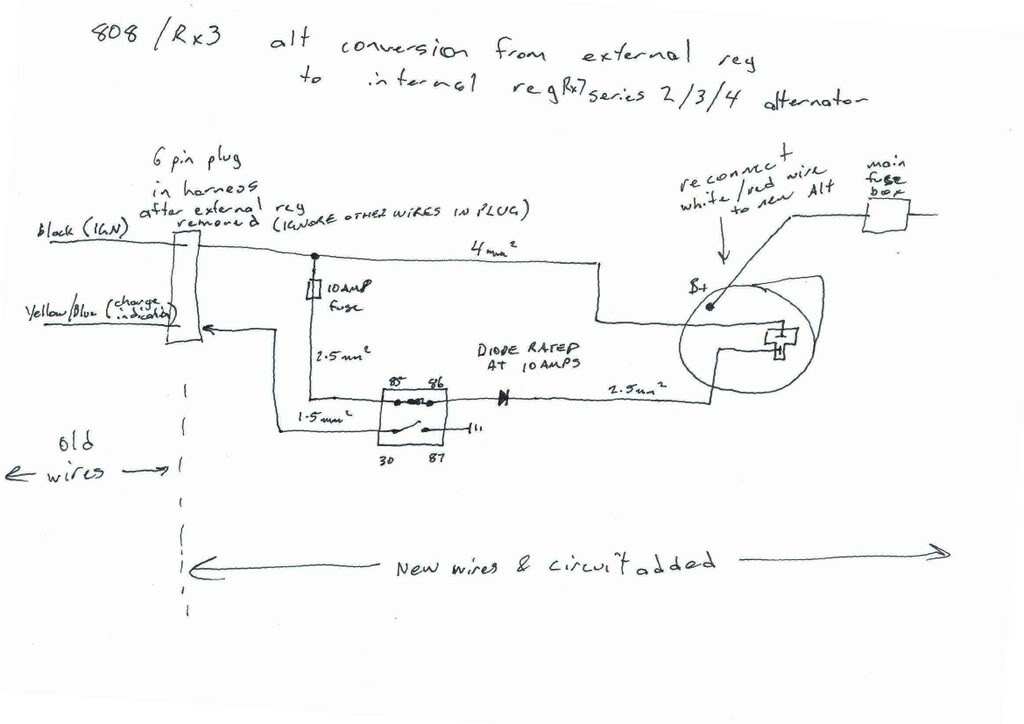 808 / Rx3 alt conversion from external reg
to internal reg Rx7 series 2/3/4 alternator
6 pin plug
in harness
after external reg
removed (IGNORE OTHER WIRES IN PLUG)
Black (IGN)
Yellow/Blue (charge
indication)
4mm²
10 AMP
fuse
2.5mm²
reconnect
white/red wire
to new Alt
main
fuse
box
B+
DIODE RATED
AT 10 AMPS
85 86
2.5mm²
1.5mm²
30 87
old
wires
New wires & circuit added